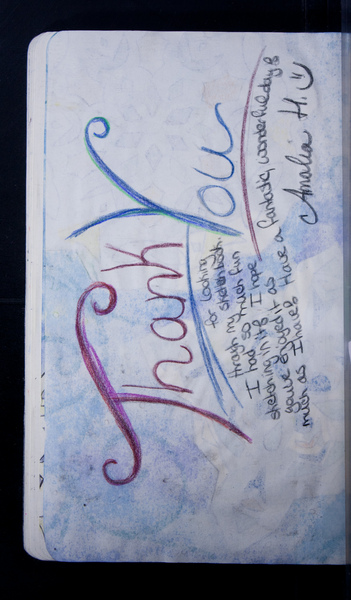 Thank You
for looking
through my sketchbook.
I had so much fun
sketching in it & I hope
you've enjoyed it as
much as I have! Have a fantastic, wonderful day &
Amalia H.